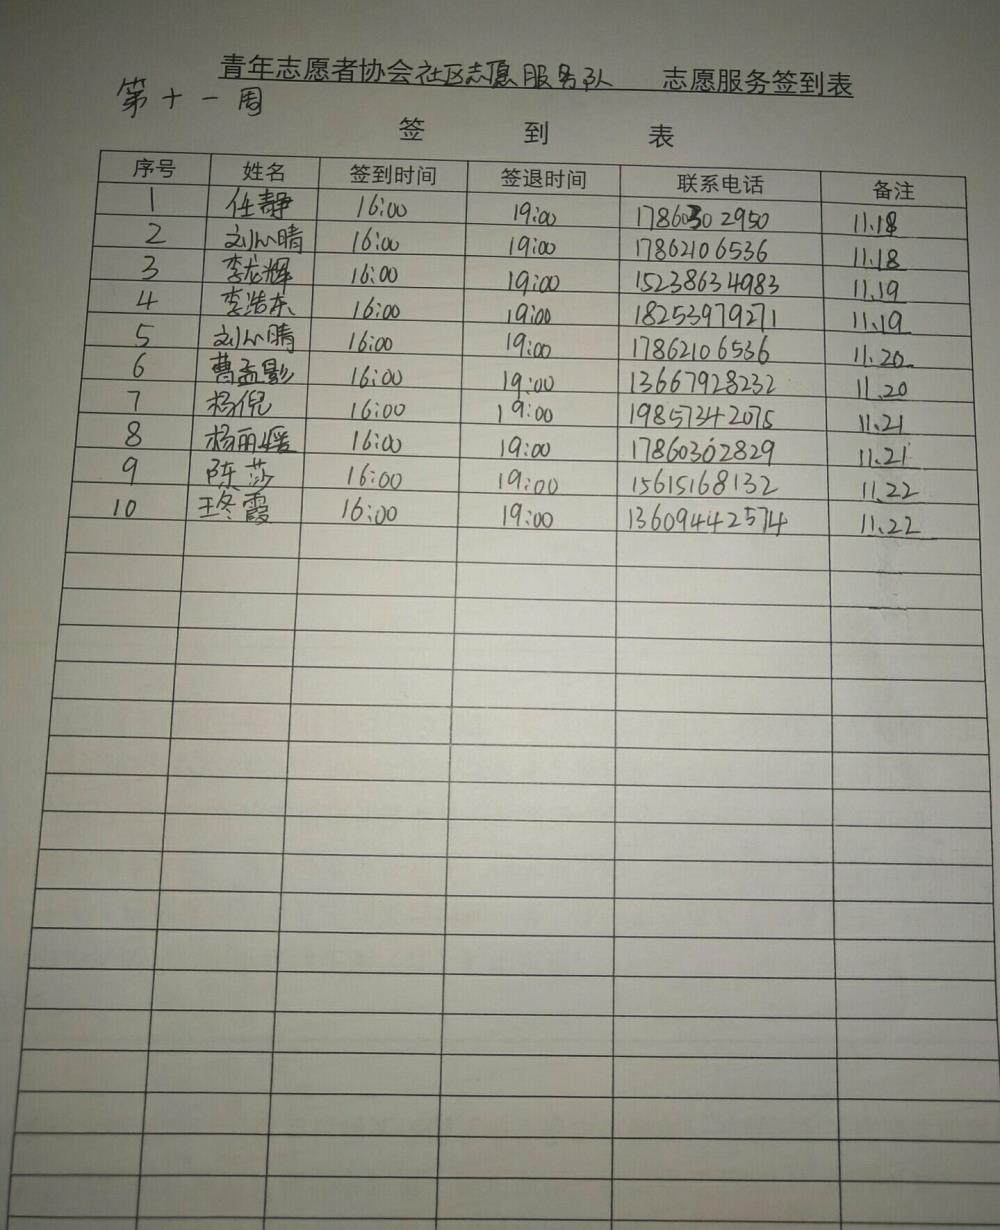 青年志愿者协会社区志愿服务队 志愿服务签到表
第十一周
签 到 表
序号 姓名 签到时间 签退时间 联系电话 备注
1 任静 16:00 19:00 17860302950 11.18
2 刘心晴 16:00 19:00 17862106536 11.18
3 李龙辉 16:00 19:00 15238634983 11.19
4 李浩东 16:00 19:00 18253979271 11.19
5 刘心晴 16:00 19:00 17862106536 11.20
6 曹孟影 16:00 19:00 13667928232 11.20
7 杨倪 16:00 19:00 19857342075 11.21
8 杨丽媛 16:00 19:00 17860302829 11.21
9 陈莎 16:00 19:00 15615168132 11.22
10 王冬霞 16:00 19:00 13609442574 11.22